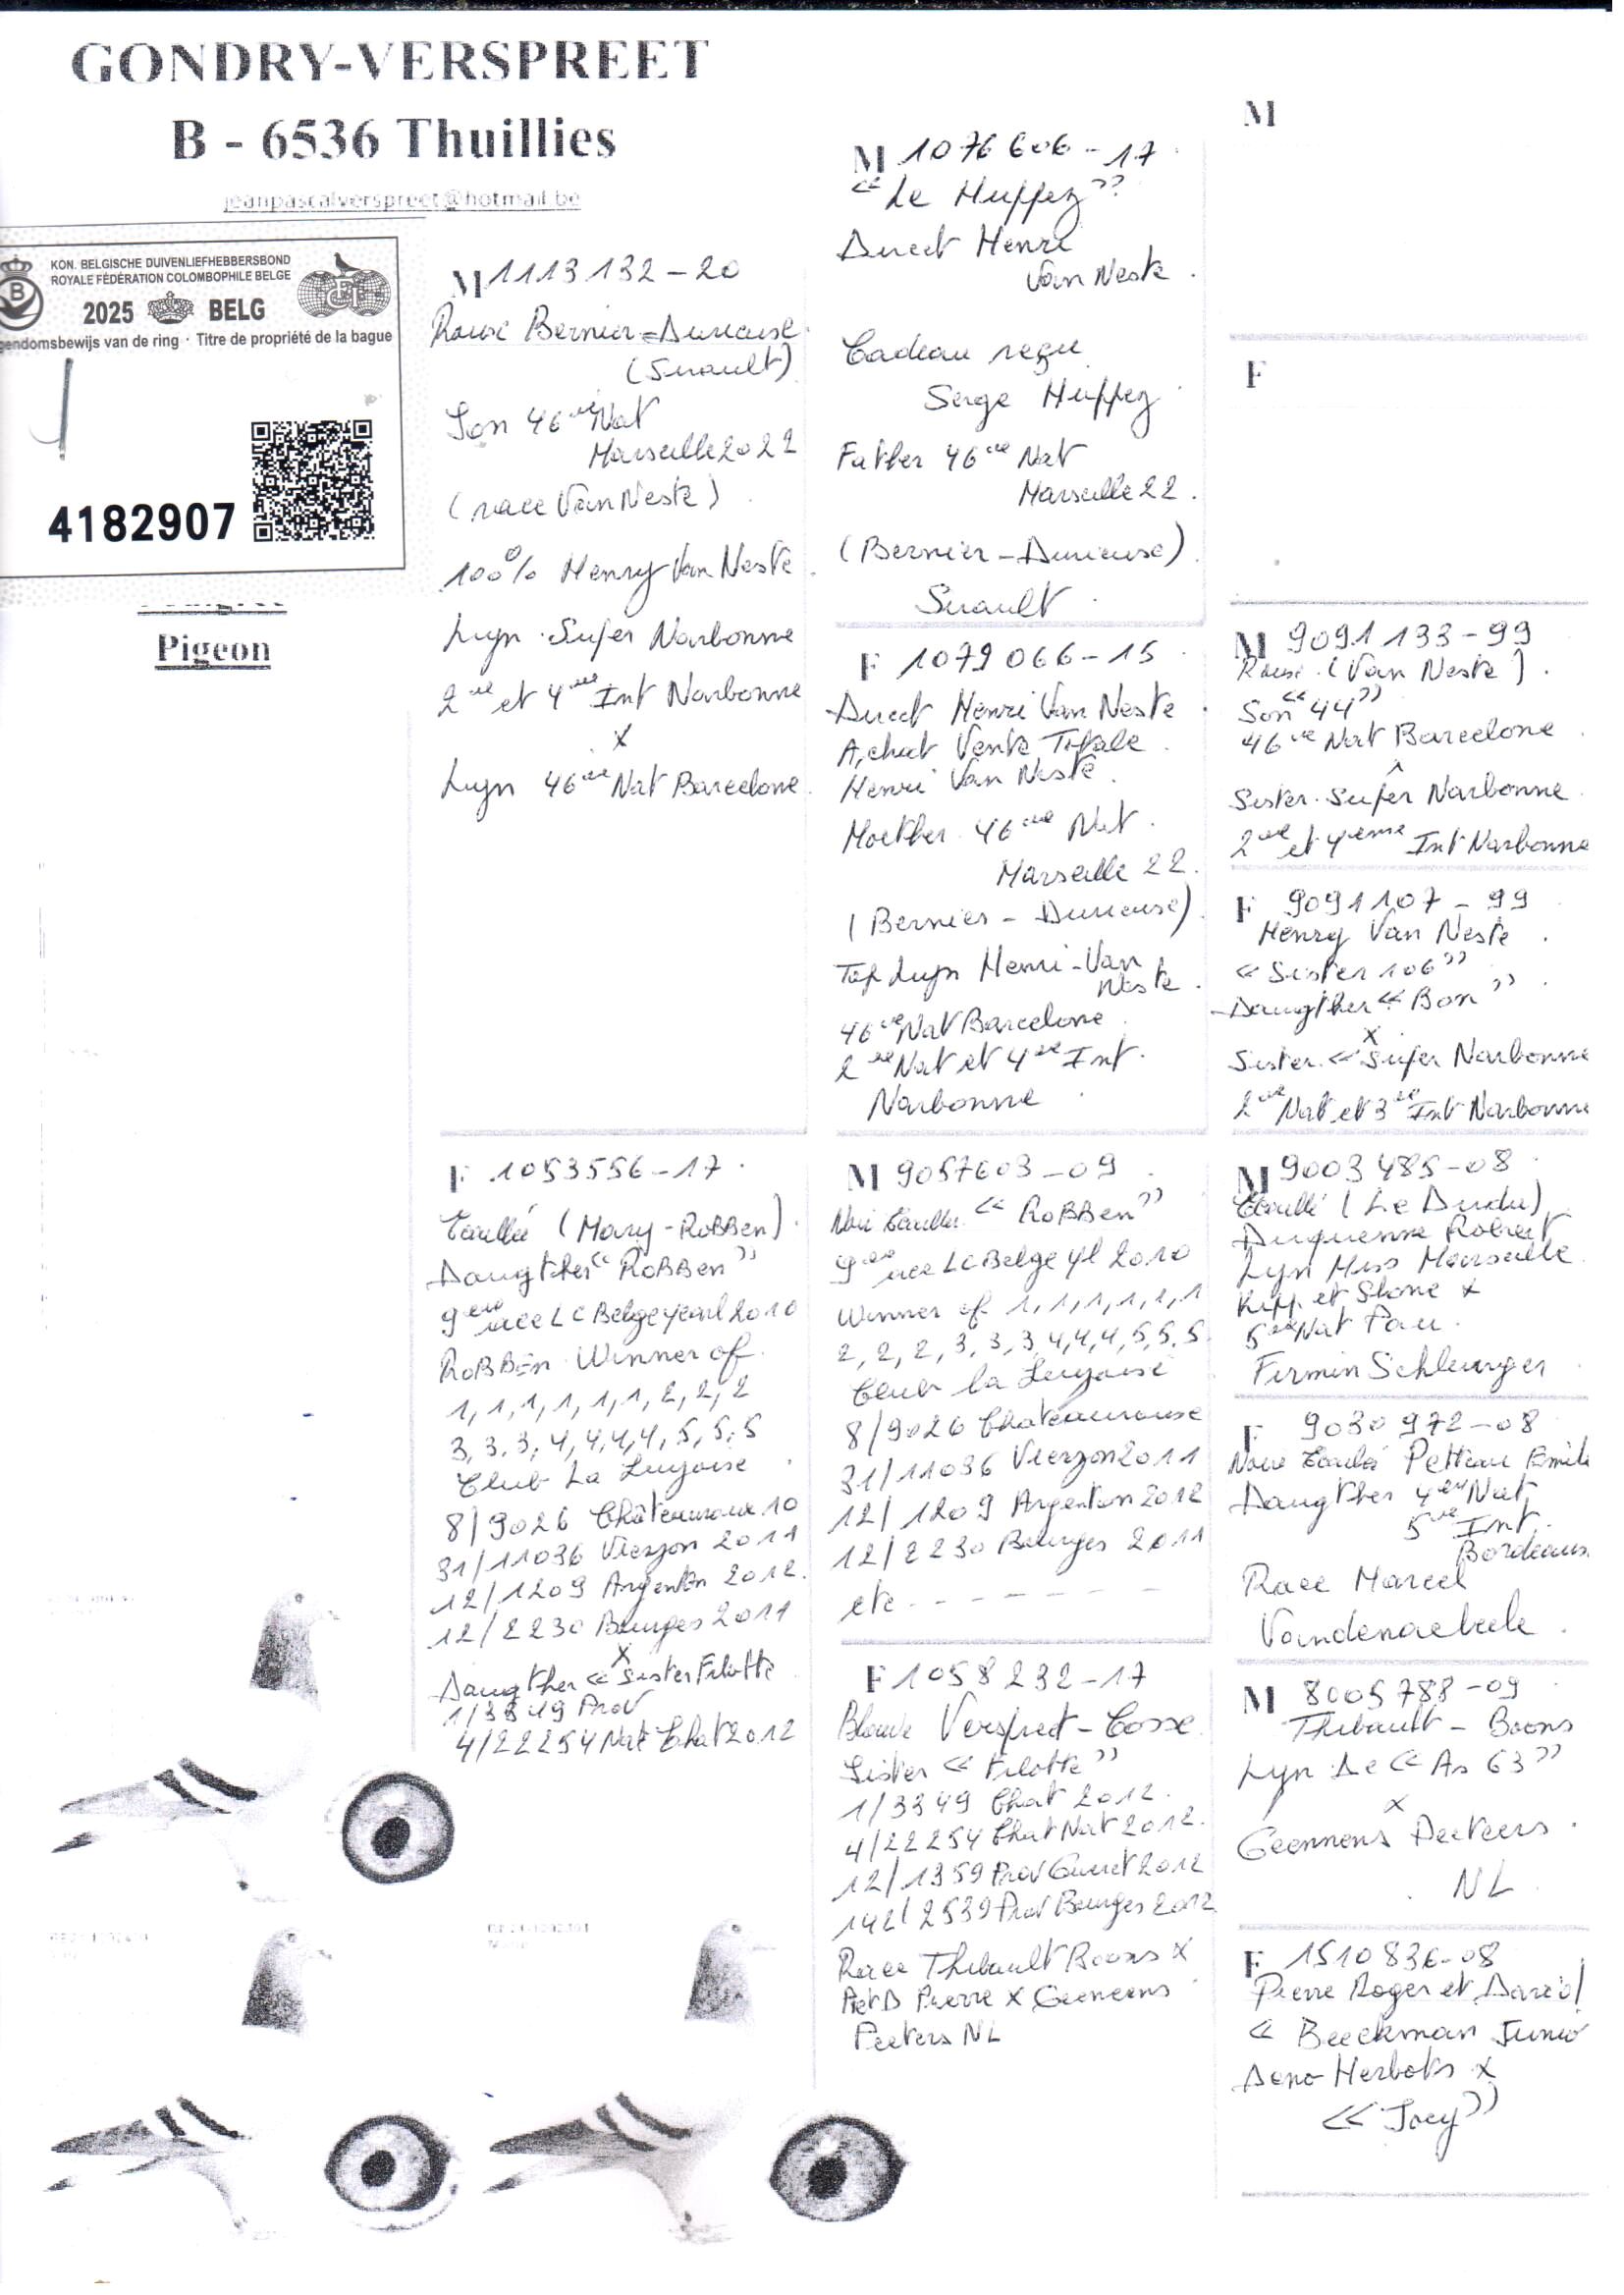 GONDRY-VERSPREET
B - 6536 Thuillies
jeanpascalverspreet@hotmail.be
KON. BELGISCHE DUIVENLIEFHEBBERSBOND
ROYALE FÉDÉRATION COLOMBOPHILE BELGE
2025 BELG
gendomsbewijs van de ring · Titre de propriété de la bague
4182907
Pigeon
M 1113132-20
Bernier-Durieuse
(Suault)
Son 46 Nat
Marseille 2022
(race Van Neste)
100% Henry Van Neste
Lyn Super Narbonne
2 et 4 Int Narbonne
x
Lyn 46 Nat Barcelone
F 1053556-17
Écaillée (Mary-Robben)
Daugther "RoBBen"
9 ace LC Belge yearl 2010
RoBBEn Winner of
1, 1, 1, 1, 1, 1, 2, 2, 2
3, 3, 3, 4, 4, 4, 4, 5, 5, 5
Club La
8/9026 Châteauroux 10
31/11036 Vierzon 2011
12/1209 Argenton 2012
12/2230 Bourges 2011
x
Daugther « Sister Filotte
1/3349 Prov
4/22254 Nat Chat 2012
M 1076606-17
« Le Huppez »
Direct Henri
Van Neste
Cadeau reçu
Serge Huppez
Father 46 Nat
Marseille 22
(Bernier-Durieuse)
Suault
F 1079066-15
Direct Henri Van Neste
Achat Vente Totale
Henri Van Neste
Moether 46 Nat
Marseille 22
(Bernier-Durieuse)
Top Lyn Henri-Van
Neste
46 Nat Barcelone
2 Nat et 4 Int
Narbonne
M 9057603-09
Noir Écaillé « RoBBen »
9 ace LC Belge yl 2010
Winner of 1, 1, 1, 1, 1, 1
2, 2, 2, 3, 3, 3, 4, 4, 4, 5, 5, 5
Club la
8/9026 Chateauroux
31/11036 Vierzon 2011
12/1209 Argenton 2012
12/2230 Bourges 2011
etc - - - - - -
F 1058232-17
Verspreet-Cosse
Sister « Filotte »
1/3349 Chat 2012
4/22254 Chat Nat 2012
12/1359 Prov Gueret 2012
142/2539 Prov Bourges 2012
Race Thibault Boons x
Pierre x Geenens
Peeters NL
M
F
M 9091133-99
(Van Neste)
Son "44"
46 Nat Barcelone
Sister Super Narbonne
2 et 4eme Int Narbonne
F 9091107-99
Henry Van Neste
« Sister 106 »
Daugther « Bon »
x
Sister « Super Narbonne
2 Nat et 3 Int Narbonne
M 9003485-08
Écaillé (Le Dudu)
Duquenne Robert
Lyn Miss Marseille
Kipp et Stone x
5 Nat Pau
Firmin
F 9030972-08
Noire Écaillée Petteau Emile
Daugther 4 Nat
5 Int
Bordeaux
Race Marcel
Vandenaebeele
M 8005788-09
Thibault-Boons
Lyn De « As 63 »
x
Geennens Peeters
NL
F 1510836-08
Pierre Roger et David
« Beeckman Junio
Deno-Herbots x
« Joey »